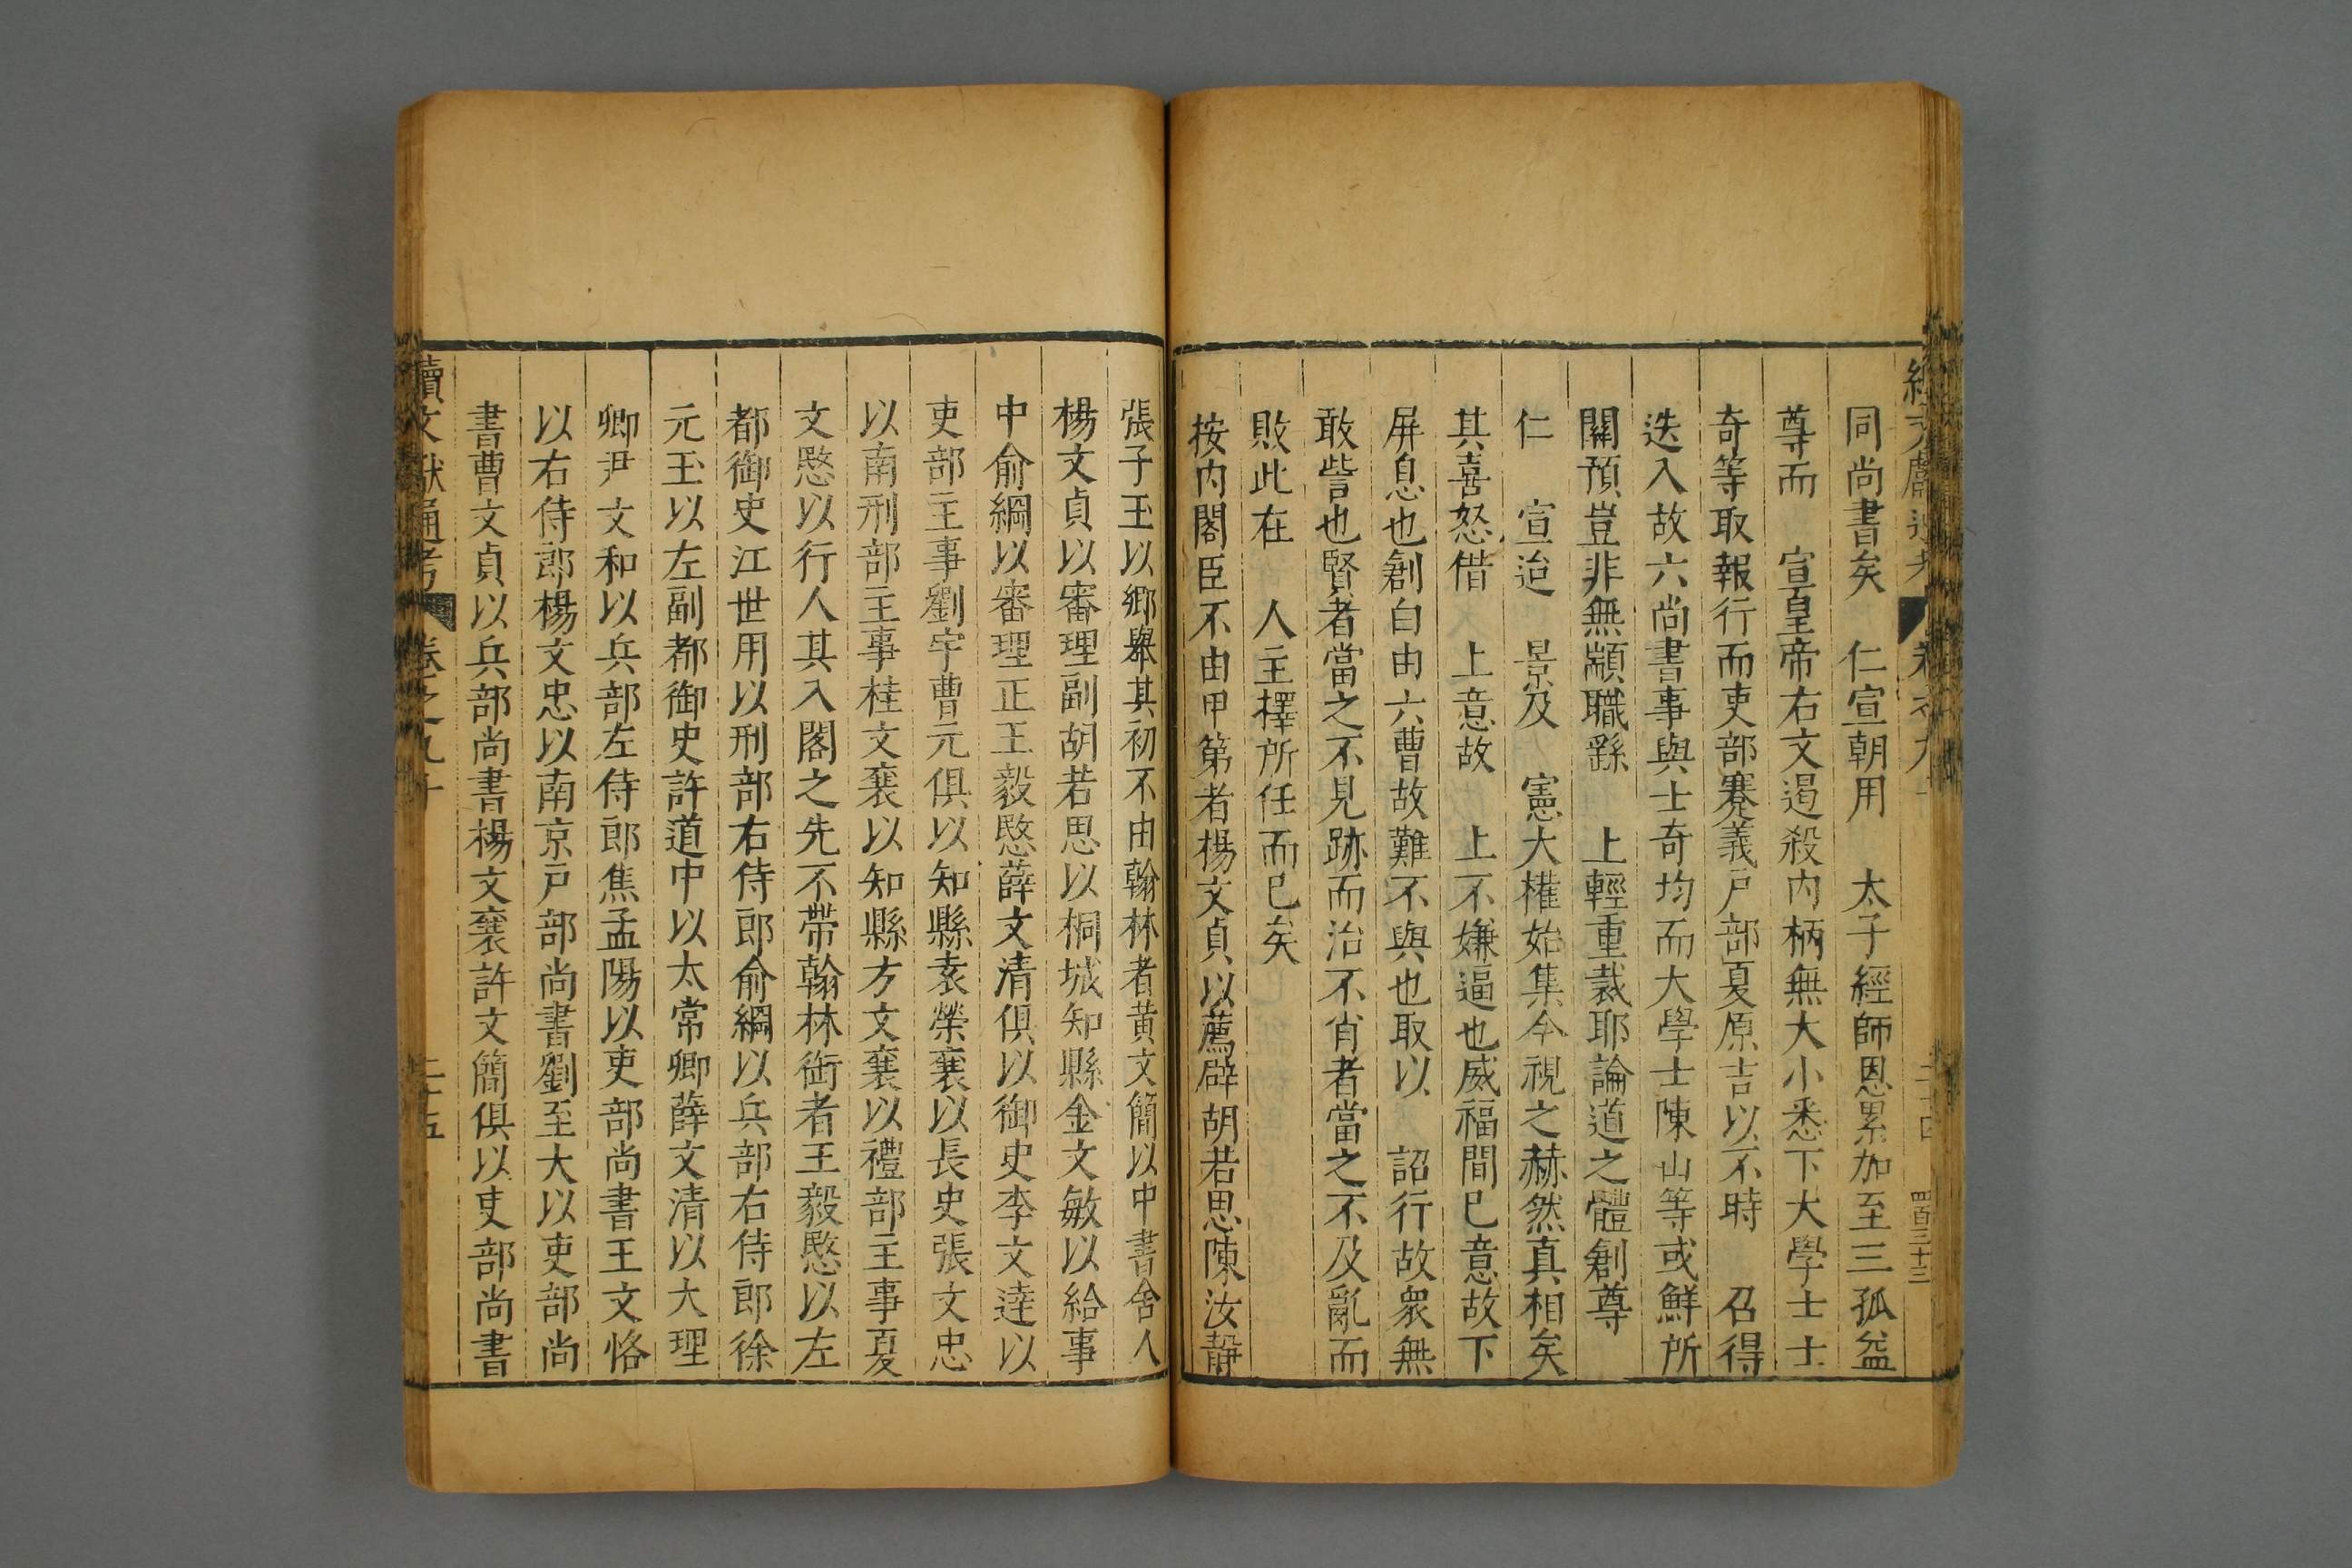 同尚書矣　仁宣朝用　太子經師恩累加至三孤益
尊而　宣皇帝右文逷殺内柄無大小悉下大學士士
奇等取報行而吏部蹇義戸部夏原吉以不時　召得
迭入故六尚書事與士奇均而大學士陳山等或鮮所
關預豈非無顓職繇　上輕重裁耶論道之體創尊
仁　宣迨　景及　憲大權始集今視之赫然真相矣
其喜怒借　上意故　上不嫌逼也威福間巳意故下
屏息也創自由六曹故難不與也取以　詔行故衆無
敢訾也賢者當之不見跡而治不肖者當之不及亂而
敗此在　人主擇所任而巳矣
按内閣臣不由甲第者楊文貞以薦辟胡若思陳汝靜
四百三十三
張子玉以鄉舉其初不由翰林者黄文簡以中書舍人
楊文貞以審理副胡若思以桐城知縣金文敏以給事
中俞綱以審理正王毅愍薛文清俱以御史李文達以
吏部主事劉宇曹元俱以知縣袁榮襄以長史張文忠
以南刑部主事桂文襄以知縣方文襄以禮部主事夏
文愍以行人其入閣之先不帶翰林銜者王毅愍以左
都御史江世用以刑部右侍郎俞綱以兵部右侍郎徐
元玉以左副都御史許道中以太常卿薛文清以大理
卿尹文和以兵部左侍郎焦孟陽以吏部尚書王文恪
以右侍郎楊文忠以南京戸部尚書劉至大以吏部尚
書曹文貞以兵部尚書楊文襄許文簡俱以吏部尚書
續文獻通考　卷之九十　二十五